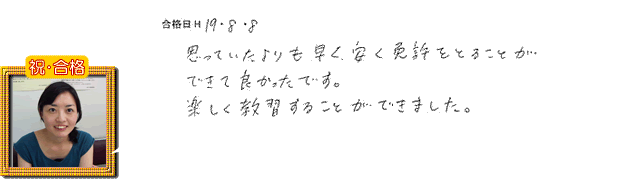 合格日 H 19・8・8
思っていたよりも早く、安く免許をとることが
できて良かったです。
楽しく教習することができました。
祝・合格